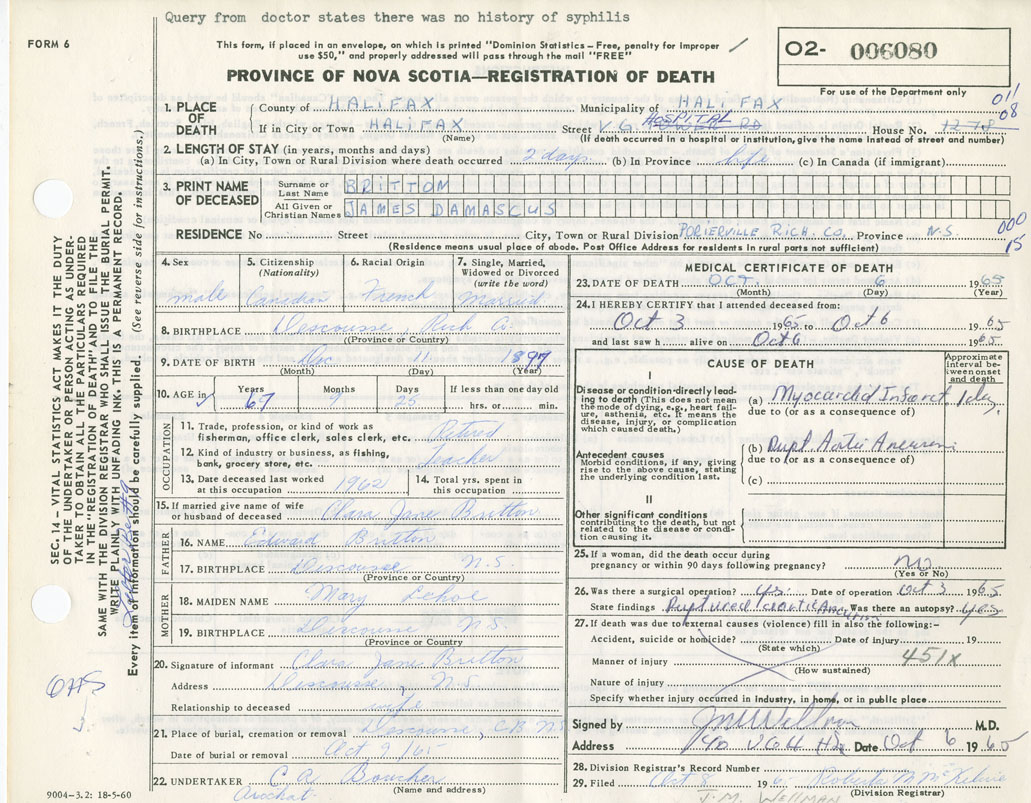 Query from doctor states there was no history of syphilis
FORM 6
This form, if placed in an envelope, on which is printed "Dominion Statistics – Free, penalty for improper
use $50," and properly addressed will pass through the mail "FREE"
O2- 006080
For use of the Department only
PROVINCE OF NOVA SCOTIA—REGISTRATION OF DEATH
011
08
1. PLACE OF DEATH
County of HALIFAX Municipality of HALIFAX
If in City or Town HALIFAX (Name) Street V.G. HOSPITAL House No. 1278
(If death occurred in a hospital or institution, give the name instead of street and number)
2. LENGTH OF STAY (in years, months and days)
(a) In City, Town or Rural Division where death occurred 2 days (b) In Province life (c) In Canada (if immigrant)
3. PRINT NAME OF DECEASED
Surname or Last Name BRITTON
All Given or Christian Names JAMES DAMASCUS
RESIDENCE No Street City, Town or Rural Division PORIERVILLE RICH. CO. Province N.S.
000
15
(Residence means usual place of abode. Post Office Address for residents in rural parts not sufficient)
4. Sex male
5. Citizenship (Nationality) Canadian
6. Racial Origin French
7. Single, Married, Widowed or Divorced (write the word) Married
8. BIRTHPLACE Descousse, Rich Co.
((Province or Country)
9. DATE OF BIRTH Dec. 11 1897
(Month) (Day) (Year)
10. AGE in Years 67 Months 9 Days 25 If less than one day old hrs. or min.
OCCUPATION
11. Trade, profession or kind of work as fisherman, office clerk, sales clerk, etc. Retired
12. Kind of industry or business, as fishing, bank, grocery store, etc. Teacher
13. Date deceased last worked at this occupation 1962
14. Total yrs. spent in this occupation
15. If married give name of wife or husband of deceased Clara Jane Britton
FATHER
16. NAME Edward Britton
17. BIRTHPLACE Descousse N.S.
(Province or Country)
MOTHER
18. MAIDEN NAME Mary
19. BIRTHPLACE Descousse N.S.
(Province or Country)
20. Signature of informant Clara Jane Britton
Address Descousse, N.S
Relationship to deceased wife
21. Place of burial, cremation or removal Descousse, C.B. N.S
Date of burial or removal Oct 9/65
22. UNDERTAKER C.A. Boucher
(Name and address)
Arichat.
9004–3.2: 18-5-60
MEDICAL CERTIFICATE OF DEATH
23. DATE OF DEATH OCT. 6 1965
(Month) (Day) (Year)
24. I HEREBY CERTIFY that I attended deceased from:
Oct 3 1965 to Oct 6 1965
and last saw h alive on Oct 6 1965
CAUSE OF DEATH
Approximate interval between onset and death
I
Disease or condition directly leading to death (This does not mean the mode of dying, e.g., heart failure, asthenia, etc. It means the disease, injury, or complication which caused death.)
(a) Myocardid Infarct 1 day
due to (or as a consequence of)
Antecedent causes
Morbid conditions, if any, giving rise to the above cause, stating the underlying condition last.
(b) Rupt Aortic Aneurism
due to (or as a consequence of)
(c)
II
Other significant conditions
contributing to the death, but not related to the disease or condition causing it.
25. If a woman, did the death occur during pregnancy or within 90 days following pregnancy? no
(Yes or No)
26. Was there a surgical operation? yes. Date of operation Oct 3 1965
State findings Ruptured aortic Aneurism Was there an autopsy? yes
27. If death was due to external causes (violence) fill in also the following:–
Accident, suicide or homicide? Date of injury 19
(State which)
451X
Manner of injury
(How sustained)
Nature of injury
Specify whether injury occurred in industry, in home, or in public place
Signed by J M Wellman M.D.
Address VGH Hx Date Oct 6 1965
28. Division Registrar's Record Number
29. Filed Oct 8 196 Roberta M McKelvie
(Division Registrar)
J. M. WELLMAN
SEC. 14 – VITAL STATISTICS ACT MAKES IT THE DUTY
OF THE UNDERTAKER OR PERSON ACTING AS UNDERTAKER
TO OBTAIN ALL THE PARTICULARS REQUIRED
IN THE "REGISTRATION OF DEATH" AND TO FILE THE
SAME WITH THE DIVISION REGISTRAR WHO SHALL ISSUE THE BURIAL PERMIT.
WRITE PLAINLY WITH UNFADING INK. THIS IS A PERMANENT RECORD.
Every item of information should be carefully supplied. (See reverse side for instructions.)